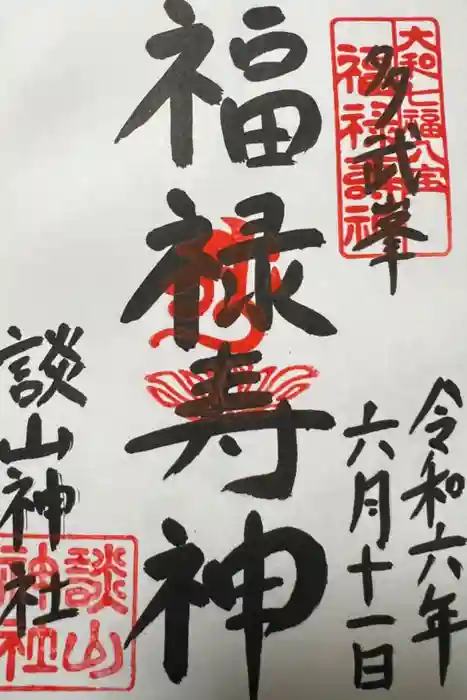 多武峯
大和七福八宝
福禄寿神
令和六年
六月十一日
談山神社
談山
神社